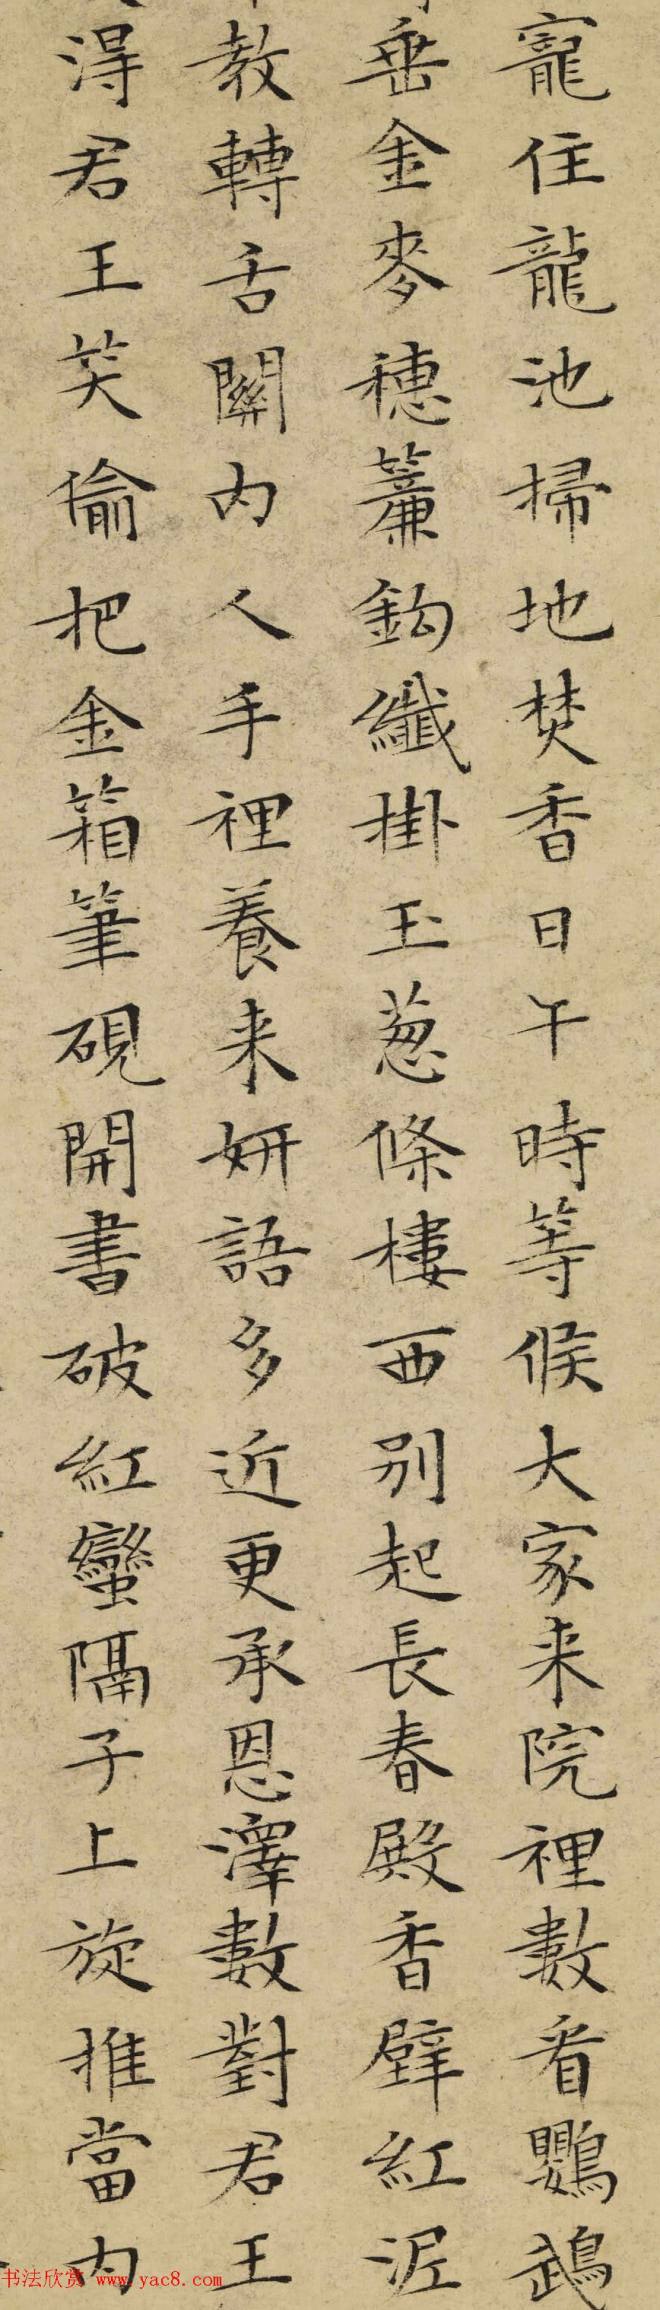 寵住龍池掃地焚香日午時等候大家来院裡數看鸚鵡
垂金麥穗簾鈎纖掛玉葱條樓西別起長春殿香壁紅泥
教轉舌關內人手裡養来妍語多近更承恩澤數對君王
得君王笑偷把金箱筆硯開書破紅蠻隔子上旋推當內
书法欣赏 www.yac8.com